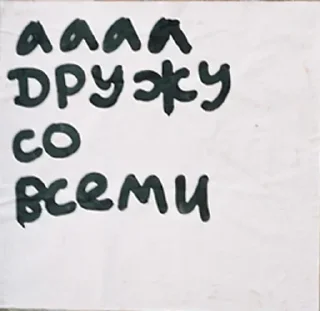 аааа
дружу
со
всеми